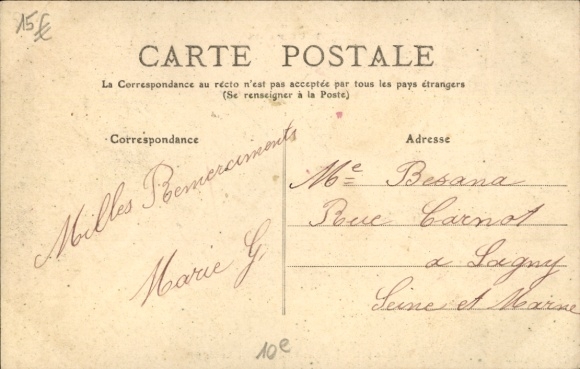 15€
CARTE POSTALE
La Correspondance au recto n'est pas acceptée par tous les pays étrangers
(Se renseigner à la Poste)
Correspondance
Milles Remerciments
Marie G.
Adresse
Me Besana
Rue Carnot
a Lagny
Seine et Marne
10e